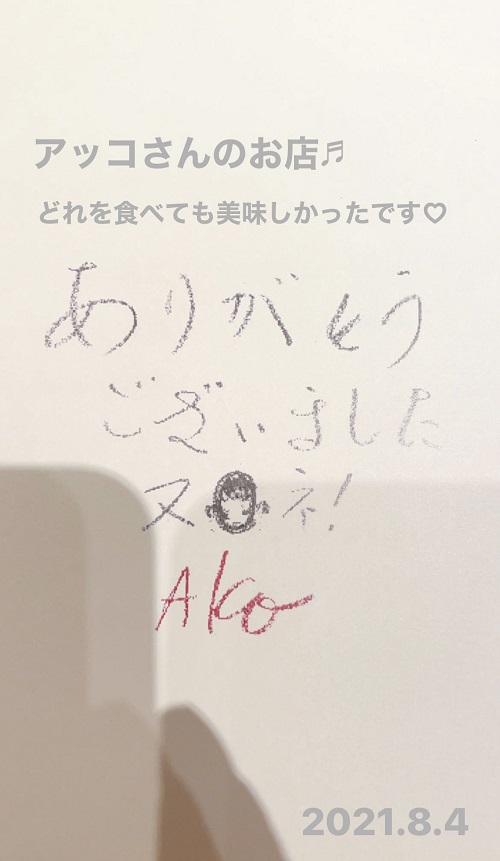 アッコさんのお店♬
どれを食べても美味しかったです♡
ありがとう
ございました
ヌネ!
Ako
2021.8.4